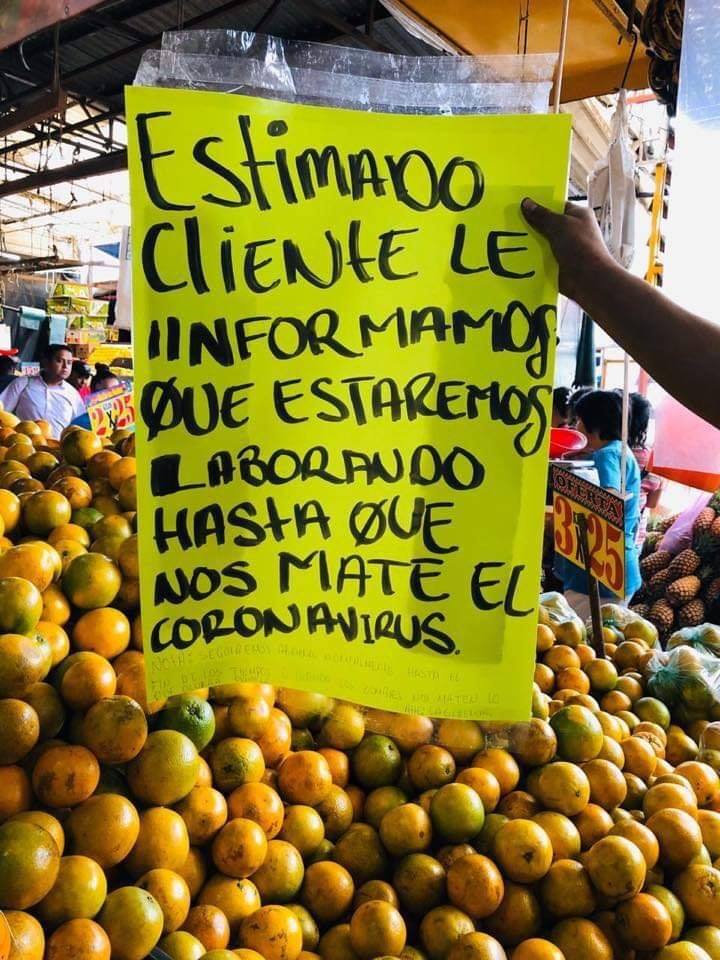 ESTIMADO
CLIENTE LE
IINFORMAMOS
QUE ESTAREMOS
LABORANDO
HASTA QUE
NOS MATE EL
CORONAVIRUS.
NOTA: SEGUIREMOS HASTA EL
FIN DE LOS TIEMPOS O CUANDO LOS ZOMBIES NOS MATEN LO
QUE
OFERTA
3X25
2X25